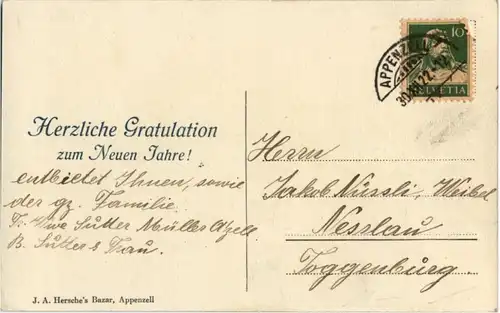 Herzliche Gratulation
zum Neuen Jahre!
entbietet Ihnen, sowie
der gz. Familie
Wwe Sutter Müllers
B. Sutter & Frau.
J. A. Hersche's Bazar, Appenzell
10
HELVETIA
APPENZELL
30.XII.22.
Herrn
Jakob Nüssli, Weibel
Nesslau
Toggenburg.